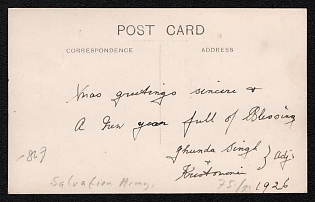 POST CARD
CORRESPONDENCE
ADDRESS
Xmas greetings sincere &
A New year full of Blessing
Jhunda Singh
+
Adj.
Salvation Army.
1926